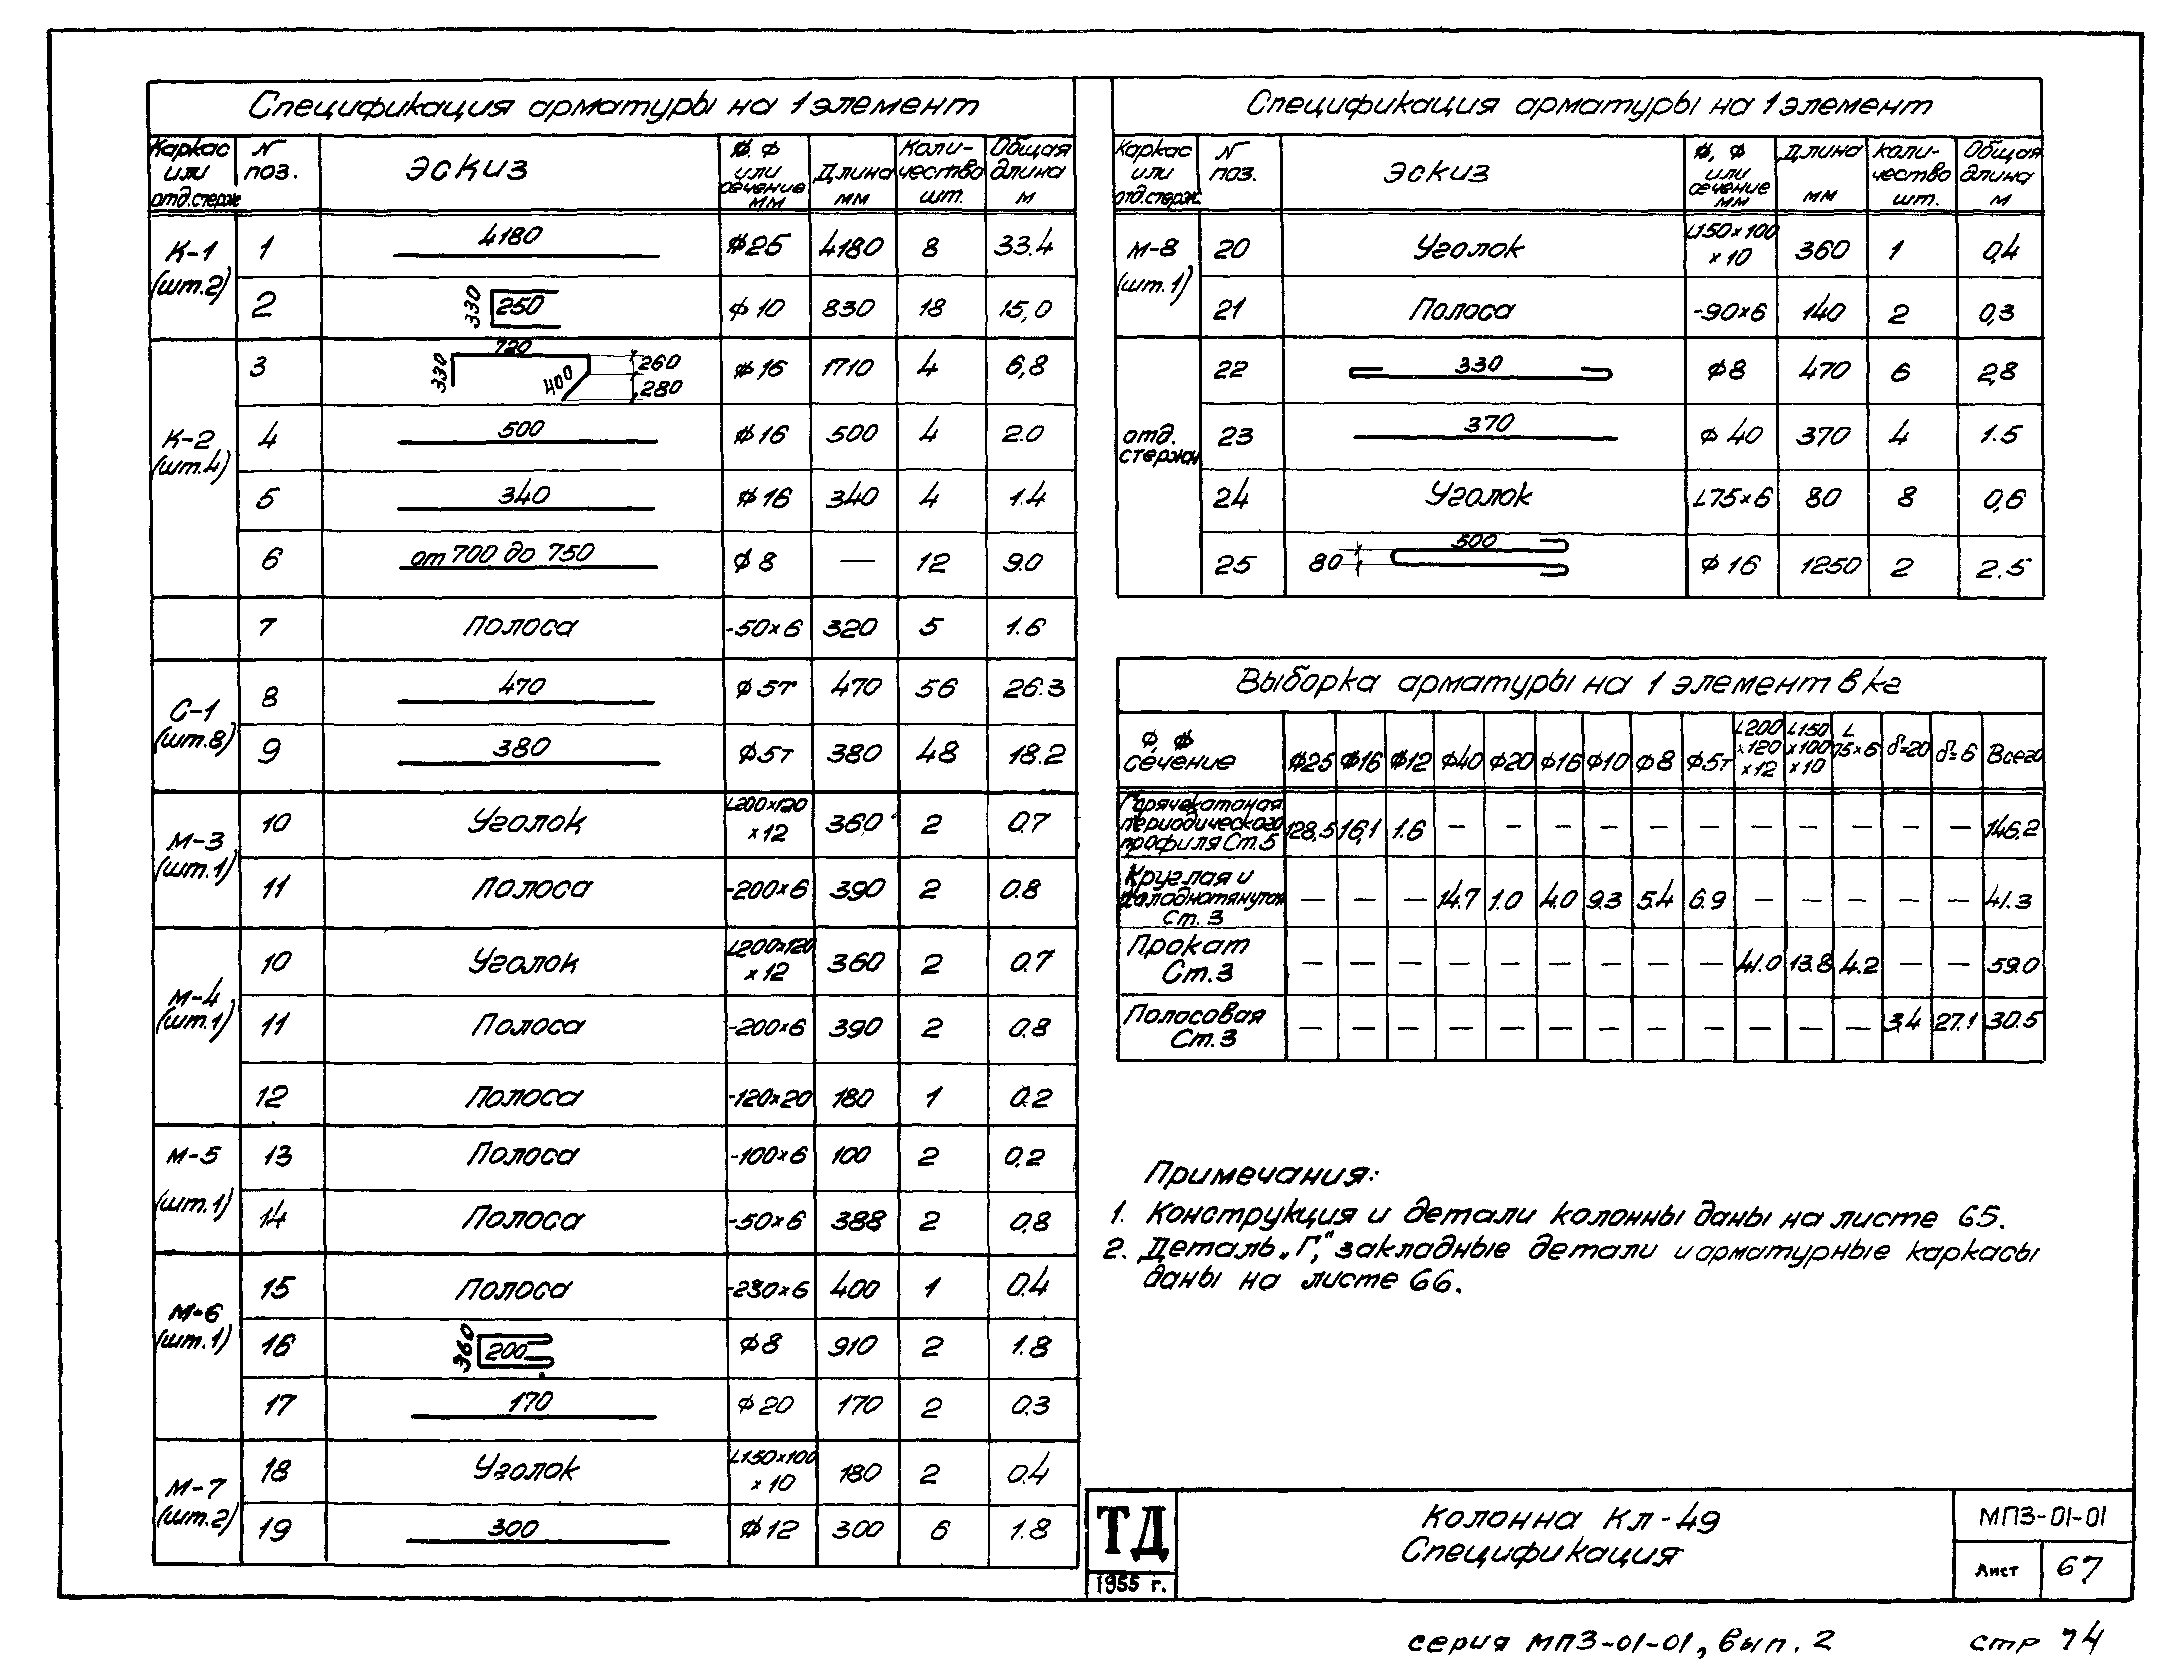 Спецификация арматуры на 1 элемент
Каркас или отд.стерж N поз. Эскиз ф, ф или сечение мм Длина мм Количество шт. Общая длина м
К-1 (шт.2) 1 4180 ф25 4180 8 33.4
2 330 250 ф10 830 18 15,0
К-2 (шт.4) 3 330 720 400 260 280 ф16 1710 4 6,8
4 500 ф16 500 4 2.0
5 340 ф16 340 4 1.4
6 от 700 до 750 ф8 — 12 9.0
7 Полоса -50×6 320 5 1.6
С-1 (шт.8) 8 470 ф5т 470 56 26.3
9 380 ф5т 380 48 18.2
М-3 (шт.1) 10 Уголок L200×120×12 360 2 0.7
11 Полоса -200×6 390 2 0.8
М-4 (шт.1) 10 Уголок L200×120×12 360 2 0.7
11 Полоса -200×6 390 2 0.8
12 Полоса -120×20 180 1 0.2
М-5 (шт.1) 13 Полоса -100×6 100 2 0.2
14 Полоса -50×6 388 2 0,8
М-6 (шт.1) 15 Полоса -230×6 400 1 0.4
16 360 200 ф8 910 2 1.8
17 170 ф20 170 2 0.3
М-7 (шт.2) 18 Уголок L150×100×10 180 2 0.4
19 300 ф12 300 6 1.8
Спецификация арматуры на 1 элемент
Каркас или отд.стерж. N поз. Эскиз ф, ф или сечение мм Длина мм Количество шт. Общая длина м
М-8 (шт.1) 20 Уголок L150×100×10 360 1 0,4
21 Полоса -90×6 140 2 0,3
отд. стержн 22 330 ф8 470 6 2,8
23 370 ф40 370 4 1.5
24 Уголок L75×6 80 8 0,6
25 80 500 ф16 1250 2 2.5
Выборка арматуры на 1 элемент в kг
ф, ф сечение ф25 ф16 ф12 ф40 ф20 ф16 ф10 ф8 ф5т L200×120×12 L150×100×10 L75×6 δ=20 δ=6 Всего
Горячекатаная периодического профиля Ст.5 128,5 16,1 1.6 — — — — — — — — — — — 146,2
Круглая и холоднотянутая Ст.3 — — — 14.7 1.0 4.0 9.3 5.4 6.9 — — — — — 41.3
Прокат Ст.3 — — — — — — — — — 41.0 13.8 4.2 — — 59.0
Полосовая Ст.3 — — — — — — — — — — — — 3.4 27.1 30.5
Примечания:
1. Конструкция и детали колонны даны на листе 65.
2. Деталь „Г," закладные детали и арматурные каркасы
даны на листе 66.
ТД
1955 г.
Колонна Кл-49
Спецификация
МПЗ-01-01
Лист 67
серия МПЗ-01-01, вып. 2 стр 74